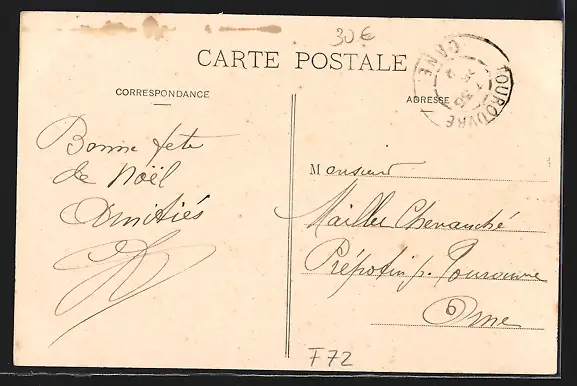 30€
CARTE POSTALE
CORRESPONDANCE
ADRESSE
TOUROUVRE
ORNE
Bonne fete
de Noël
Amitiés
Monsieur
Maillu Chevauché
Prépotin p. Tourouvre
Orne
F72